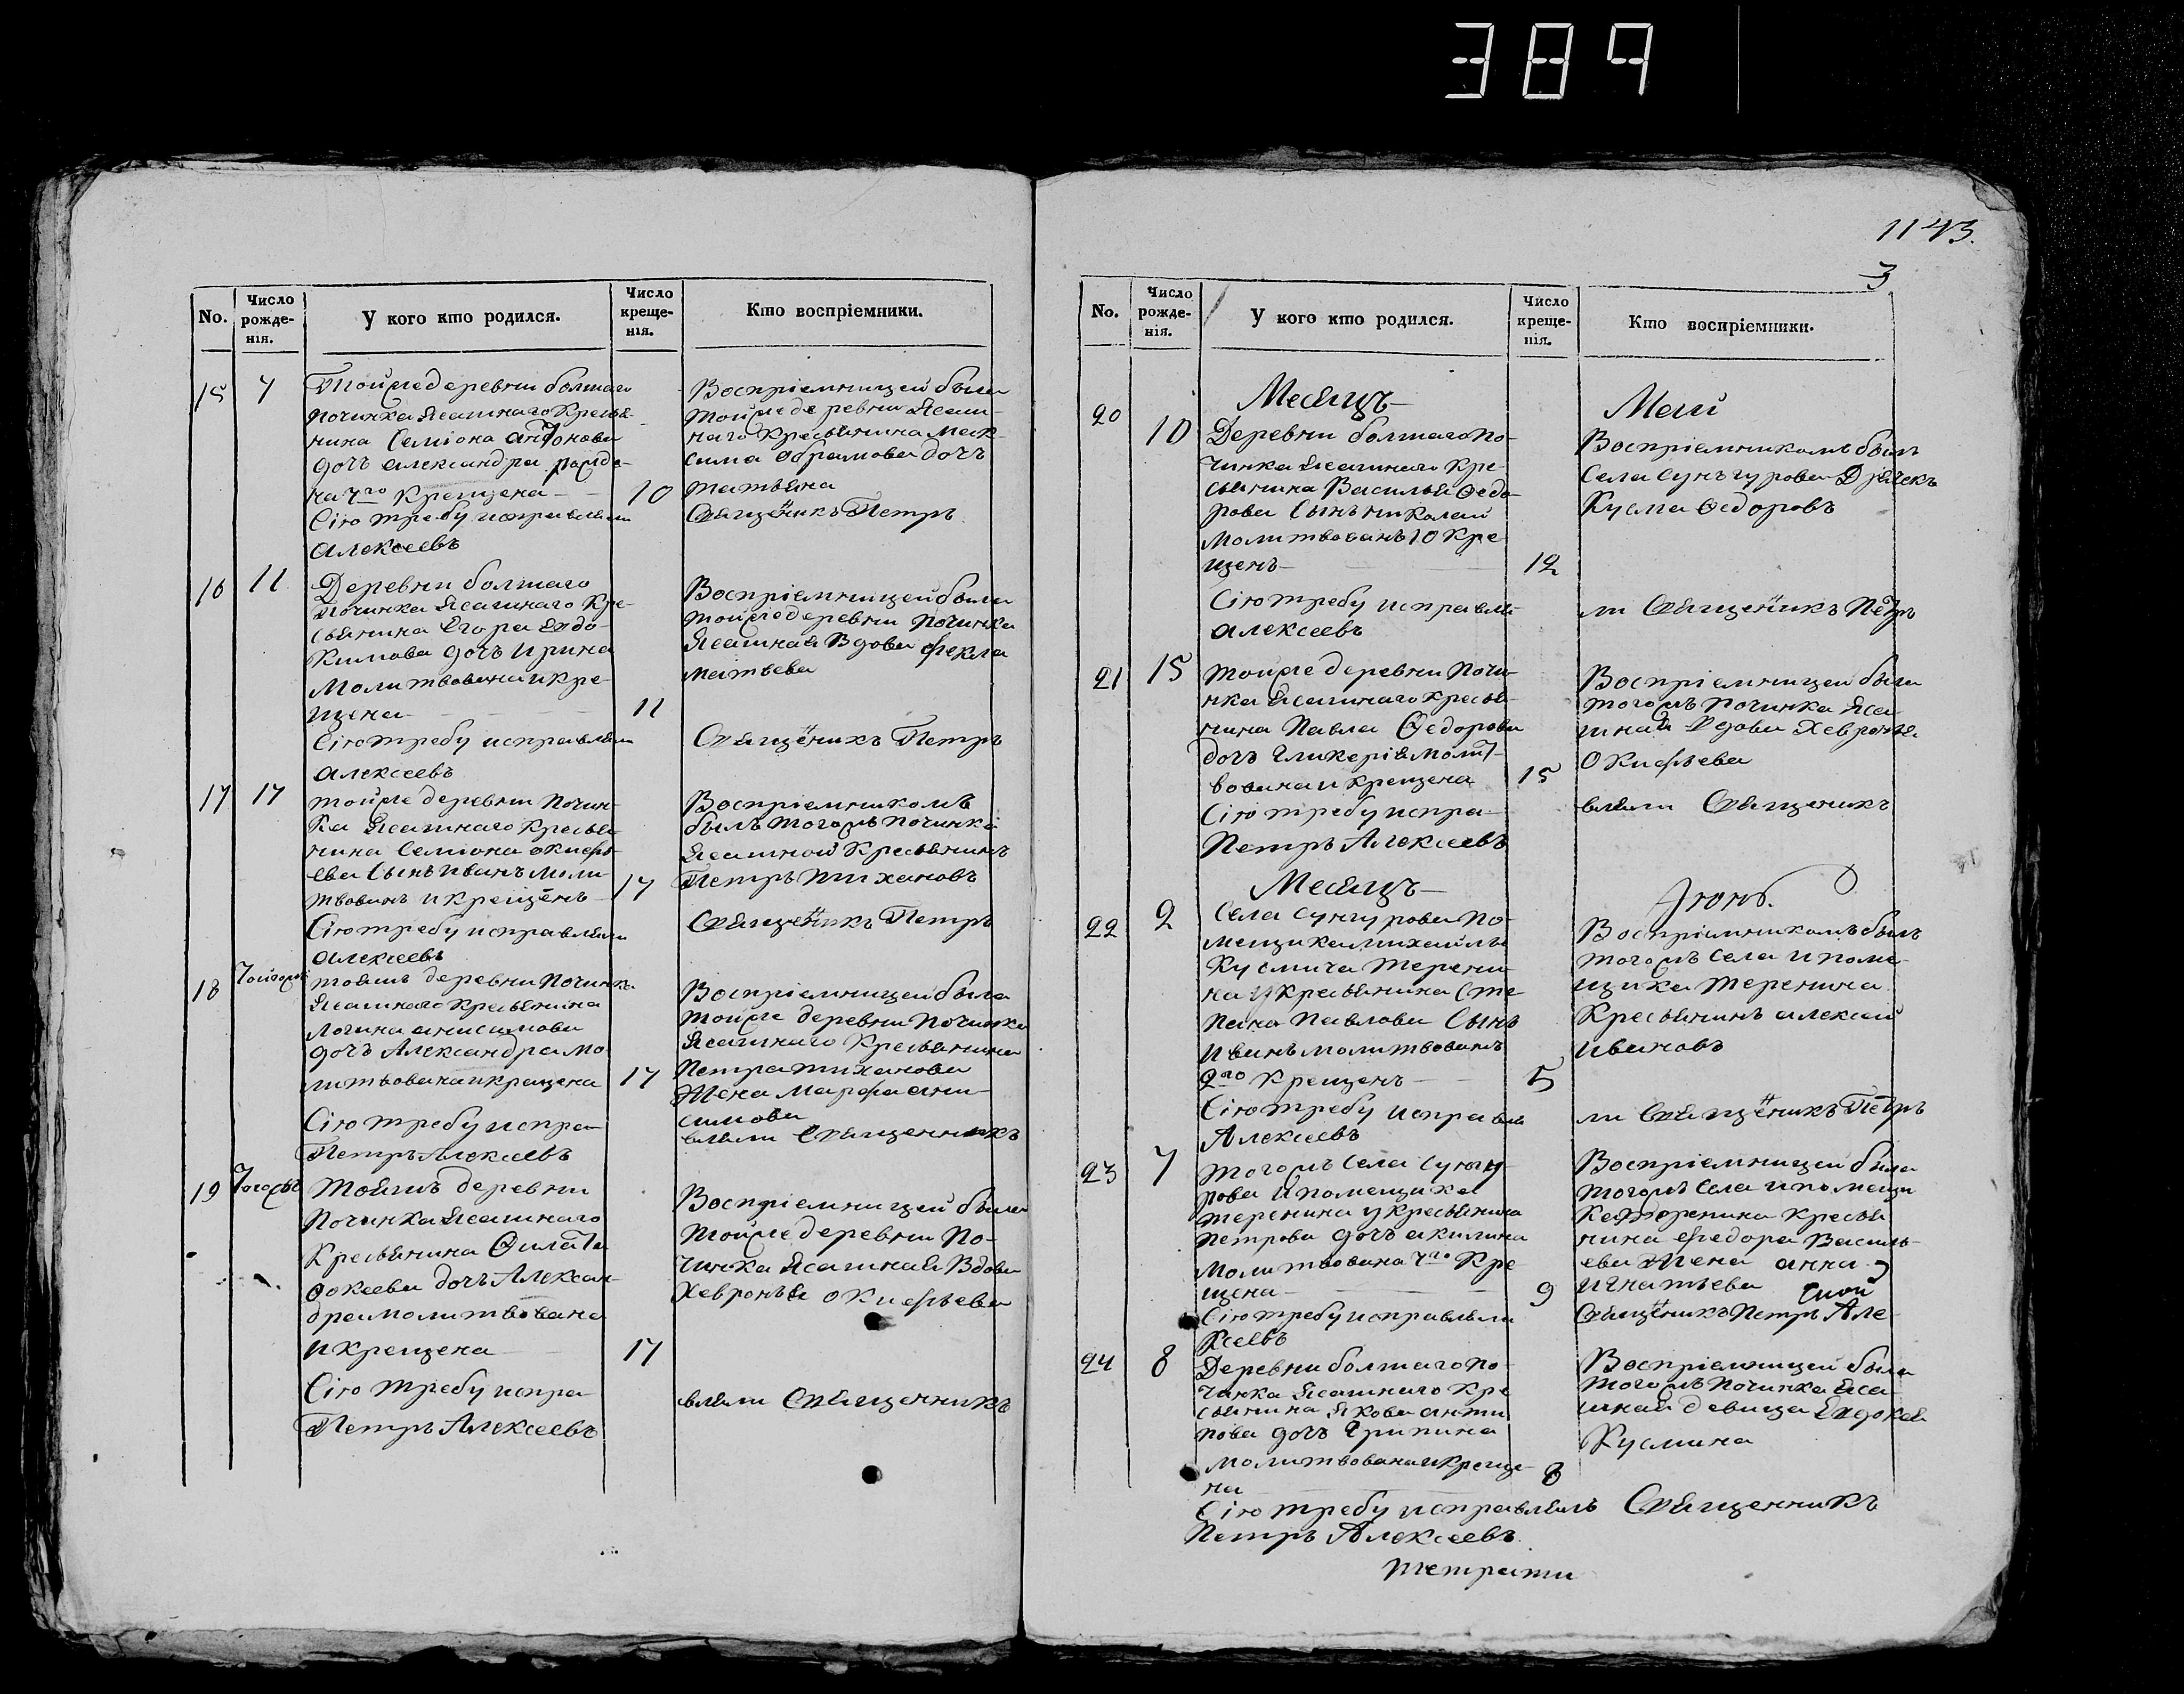 389
1143.
3
No.
Число рожде-нія.
У кого кто родился.
Число креще-нія.
Кто воспріемники.
15
7
Тойже деревни болшаго
починка Ясашнаго Кресья-
нина Семіона антонова
дочь александра рожде-
на 7го крещена
10
Сію требу исправляли
Алексеевъ
Воспріемницей была
тойже деревни Ясаш-
наго Кресьянина Мак-
сима абрамова дочь
татьяна
Священникъ Петръ
16
11
Деревни болшаго
Починка Ясашнаго Кре-
сьянина Егора Евдо-
кимова дочь Ирина
Молитвована и кре-
щена
11
Сію требу исправляли
алексеевъ
Воспріемницей была
тойже деревни починка
Ясашная Вдова фекла
матвева
Священникъ Петръ
17
17
тойже деревни Почин-
ка Ясашнаго Кресья-
нина Семіона окифь-
ева Сынъ Иванъ моли
твованъ и крещенъ
17
Сію требу исправляли
алексеевъ
Воспріемникомъ
былъ тогожъ починка
Ясашной Кресьянинъ
Петръ Тихановъ
Священникъ Петръ
18
тояжъ деревни Починка
Ясашнаго Кресьянина
Логина анисимова
дочь Александра мо
литвована и крещена
17
Сію требу испра
Петръ Алексеевъ
Воспріемницей была
тойже деревни Починка
Ясашнаго Кресьянина
Петра тиханова
Жена Марфа ани-
симова
вляли Священникъ
19
Тогожъ
Тояжъ деревни
Починка Ясашнаго
Кресьянина Филата
фокеева дочь Алексан-
дра молитвована
и крещена
17
Сію требу испра
Петръ Алексеевъ
Воспріемницей была
Тойже деревни По-
чинка Ясашная Вдова
Хевронья окифьева
вляли Священникъ
No.
Число рожде-нія.
У кого кто родился.
Число креще-нія.
Кто воспріемники.
Месяцъ
Маій
20
10
Деревни болшаго по-
чинка Ясашнаго Кре-
сьянина Василья Федо-
рова Сынъ николай
Молитвованъ 10 Кре
щенъ
12
Сію требу исправля-
алексеевъ
Воспріемникомъ былъ
Села Сунгурова Дьячекъ
Кузма Федоровъ
ли Священникъ Петръ
21
15
тойже деревни Почи-
нка Ясашнаго Кресья-
нина Павла Федорова
дочь Гликерія молит-
вована и крещена
15
Сію требу испра-
Петръ Алексеевъ
Воспріемницей была
тогожъ починка Яса
шная Вдова Хевронья
Окифьева
вляли Священикъ
Месяцъ
Іюнь.
22
2
Села Сунгурова по-
мещика михайлы
Кузмича теренина
на у Кресьянина Сте
пана Павлова Сынъ
Иванъ молитвованъ
2го Крещенъ
5
Сію требу исправля
Алексеевъ
Воспріемникомъ былъ
тогожъ Села и поме-
щика теренина
Кресьянинъ алексей
ивановъ
ли Священникъ Петръ
23
7
тогожъ Села Сунгу-
рова и помещика
теренина у Кресьянина
Петрова дочь акилина
Молитвована 7го Кре
щена
9
Сію требу исправляли
Ксеевъ
Воспріемницей была
тогожъ Села и помещи
ка теренина кресья
нина федора Василь-
ева жена анна
игнатьева
Священникъ Петръ Але-
24
8
Деревни болшаго по-
чинка Ясашнаго Кре
сьянина Якова анти
пова дочь Грипина
молитвована и креще-
на
8
Сію требу исправлялъ Священникъ
Петръ Алексеевъ
Воспріемницей была
тогожъ починка Яса
шная девица Евдокея
Кузмина